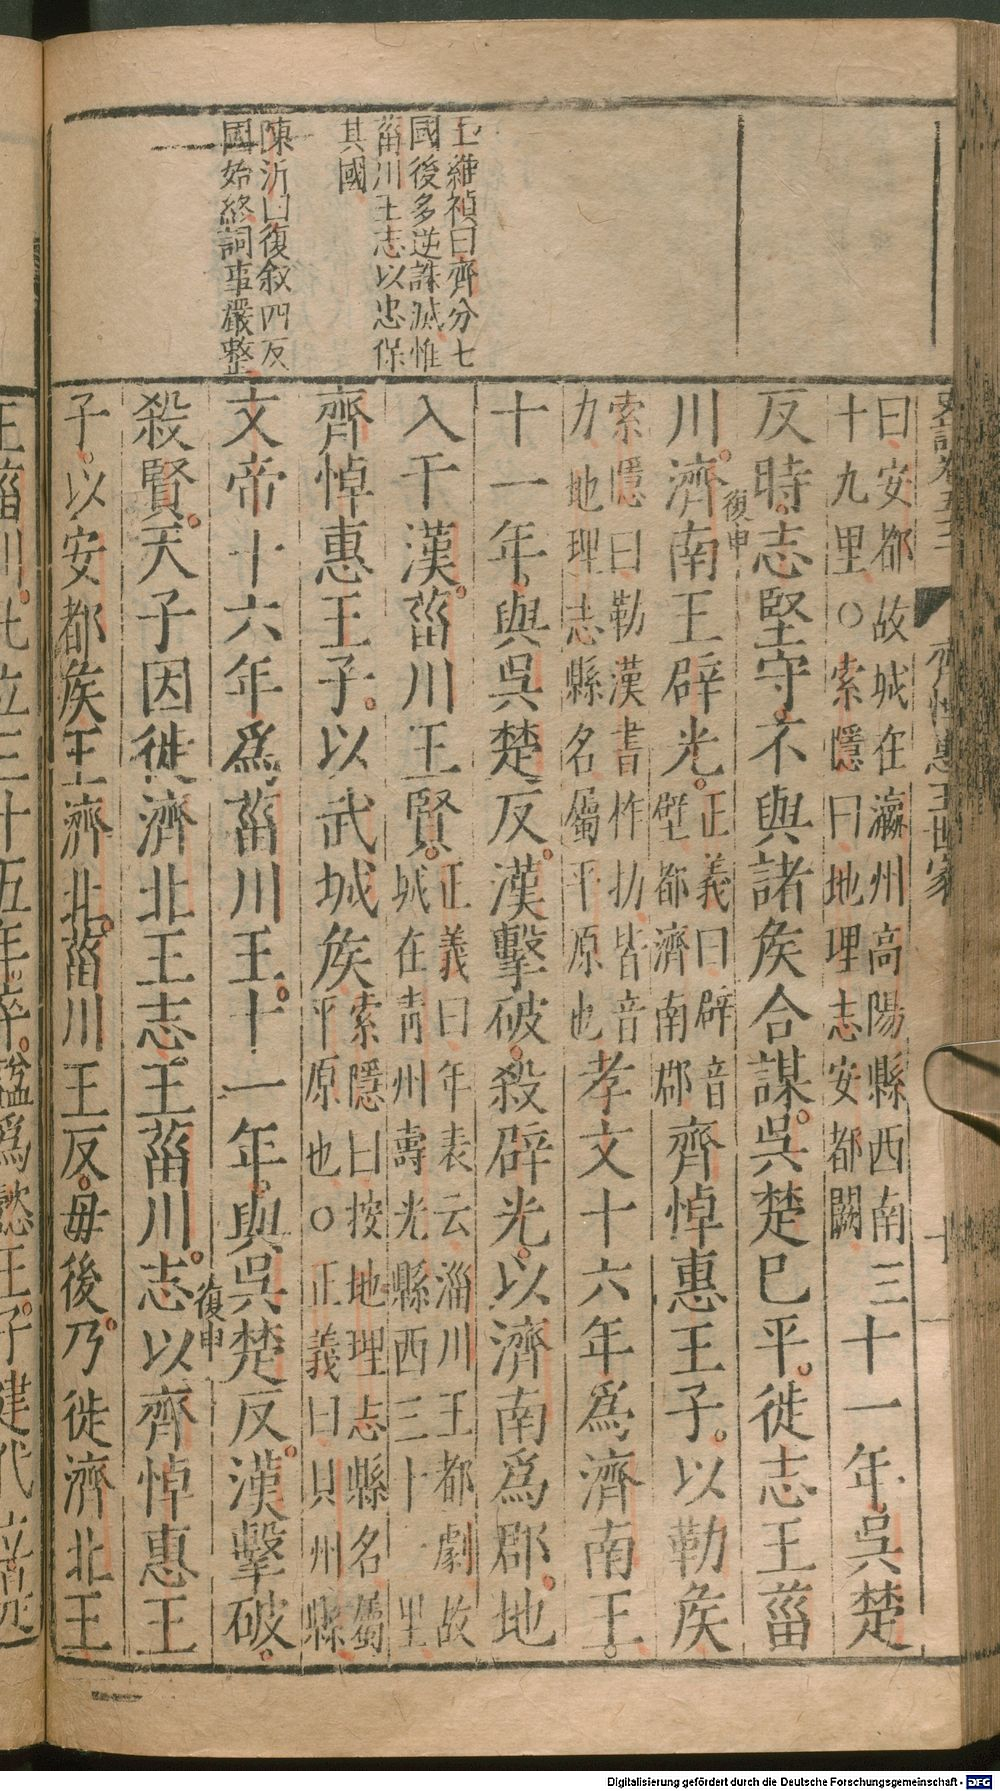 王維楨曰齊分七
國後多逆誅滅惟
菑川王志以忠保
其國
陳沂曰復敘四反
國始終詞事嚴整
曰安都故城在瀛州高陽縣西南三
十九里○索隱曰地理志安都闕
十一年吳楚
反時志堅守不與諸侯合謀吳楚已平徙志王菑
川濟南王辟光
復申
正義曰辟音
壁都濟南郡
齊悼惠王子以勒侯
索隱曰勒漢書作扐皆音
力地理志縣名屬平原也
孝文十六年爲濟南王
十一年與吳楚反漢擊破殺辟光以濟南爲郡地
入于漢菑川王賢
正義曰年表云淄川王都劇故
城在青州壽光縣西三十一里
齊悼惠王子以武城侯
索隱曰按地理志縣名屬
平原也○正義曰貝州縣
文帝十六年爲菑川王十一年與吳楚反漢擊破
殺賢天子因徙濟北王志王菑川
復申
志以齊悼惠王
子以安都侯王濟北菑川王反毋後乃徙濟北王
王菑川凡立三十五年卒謚爲懿王子建代立
Digitalisierung gefördert durch die Deutsche Forschungsgemeinschaft - DFG